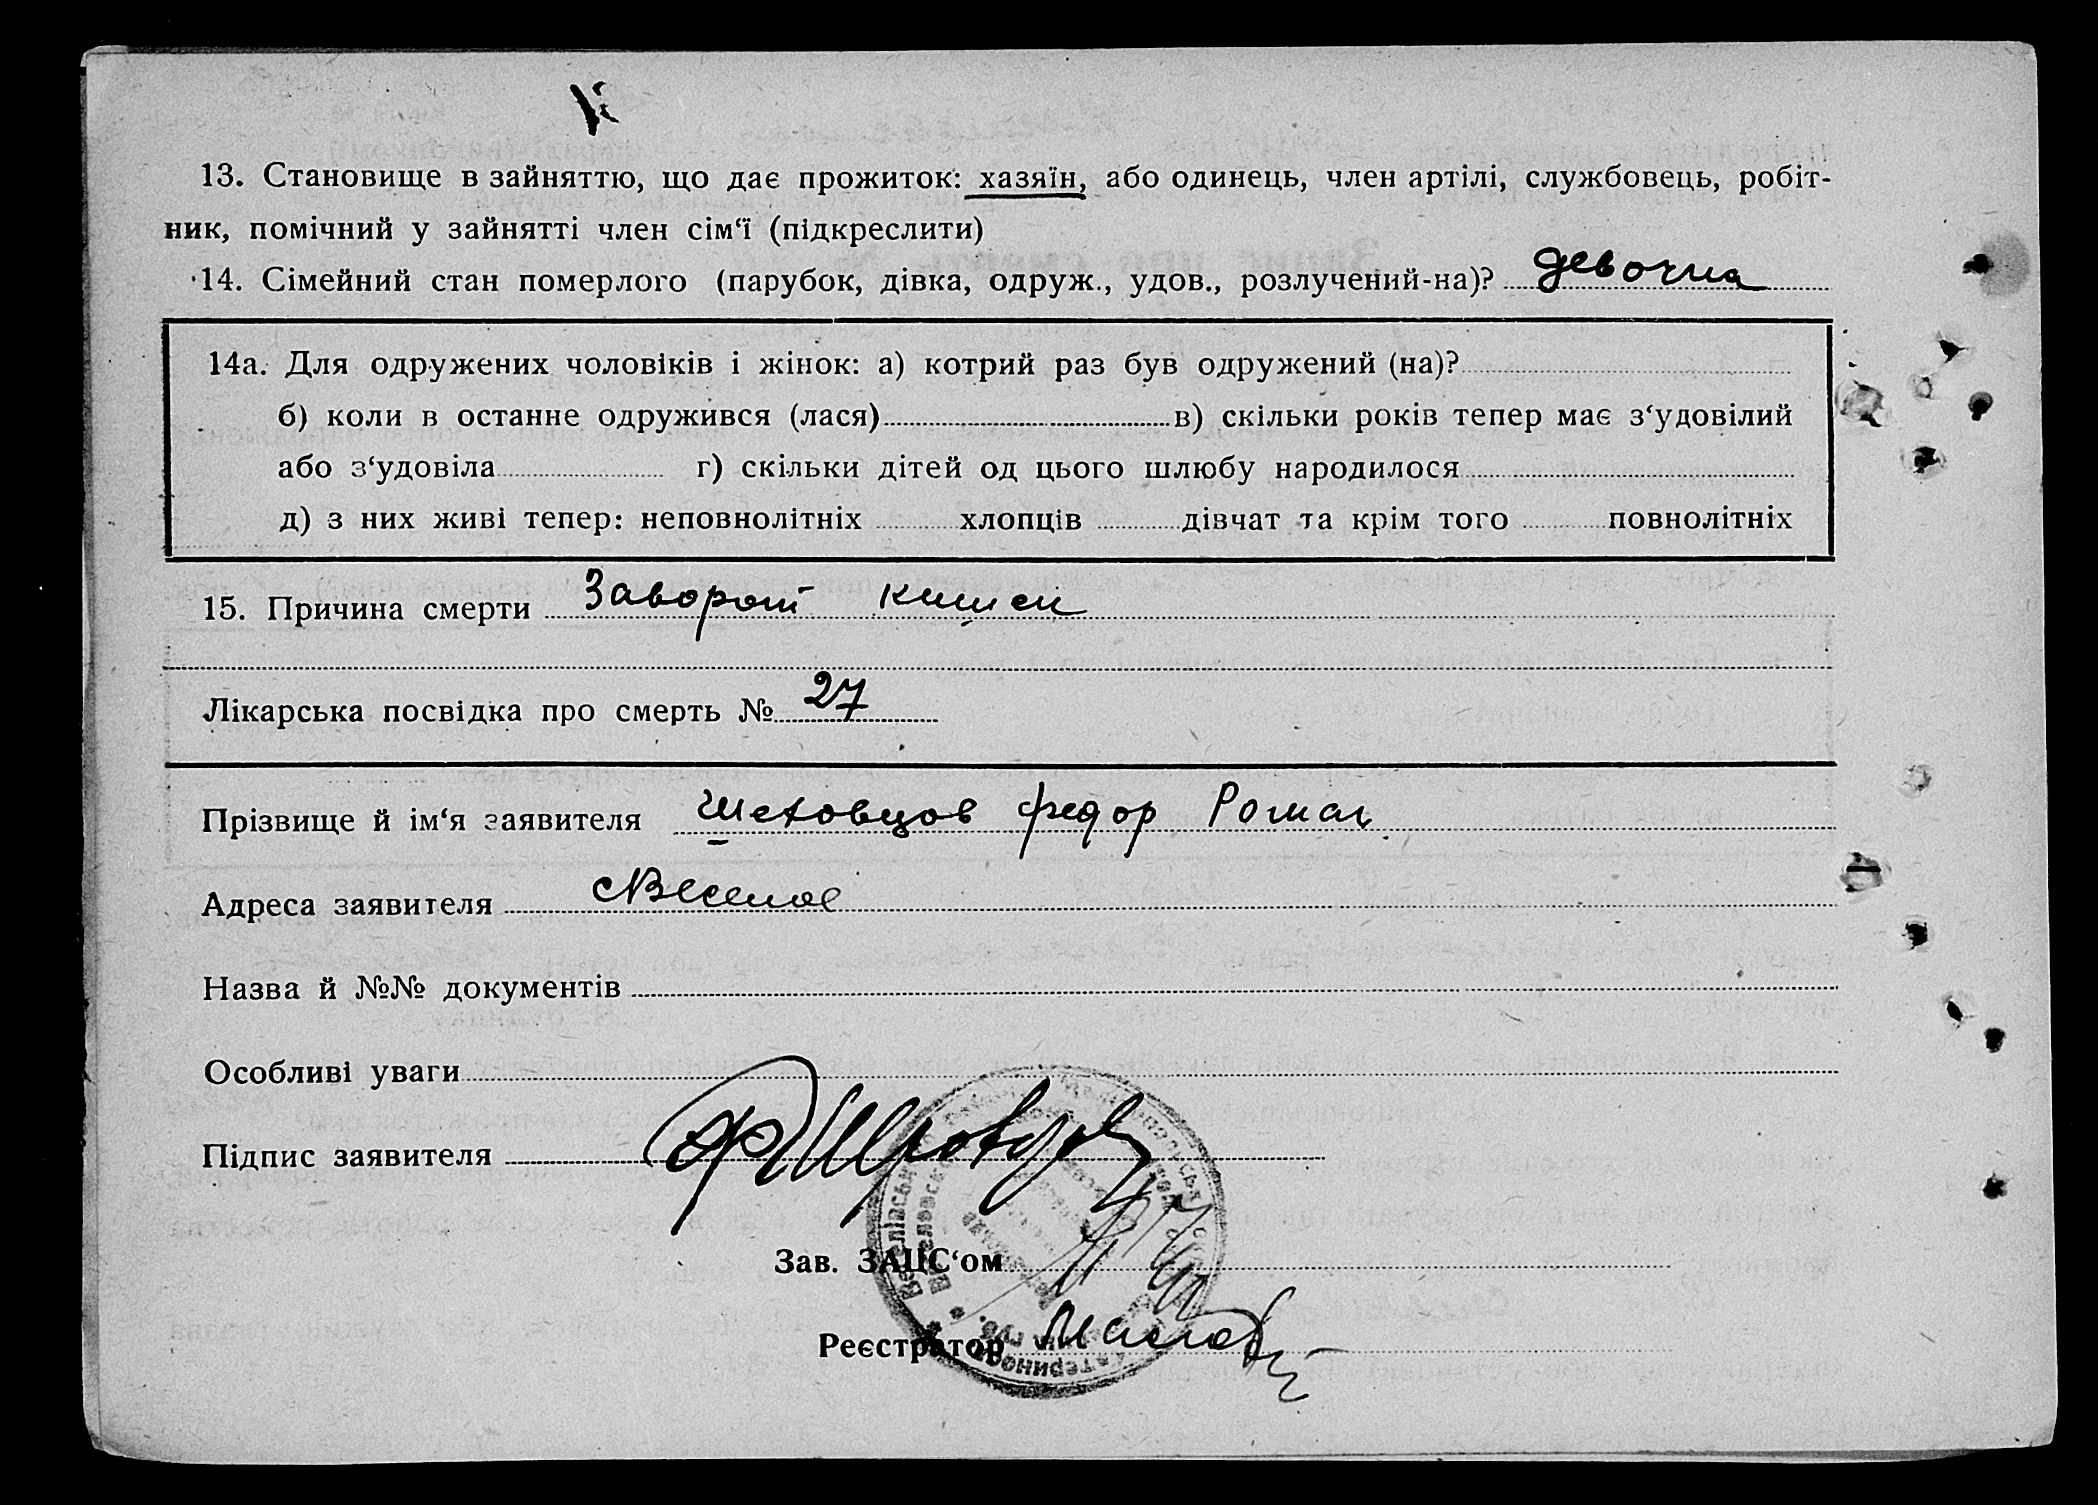 13. Становище в зайняттю, що дає прожиток: хазяїн, або одинець, член артілі, службовець, робіт-
ник, помічний у зайнятті член сім‘ї (підкреслити)
14. Сімейний стан померлого (парубок, дівка, одруж., удов., розлучений-на)? девочка
14а. Для одружених чоловіків і жінок: а) котрий раз був одружений (на)?
б) коли в останне одружився (лася) в) скільки років тепер має з‘удовілий
або з‘удовіла г) скільки дітей од цього шлюбу народилося
д) з них живі тепер: неповнолітніх хлопців дівчат та крім того повнолітніх
15. Причина смерти Заворот кишек
Лікарська посвідка про смерть № 27
Прізвище й ім‘я заявителя Шеховцов Федор Роман
Адреса заявителя с Веселое
Назва й №№ документів
Особливі уваги
Підпис заявителя
Зав. ЗАЦС‘ом
Реєстратор